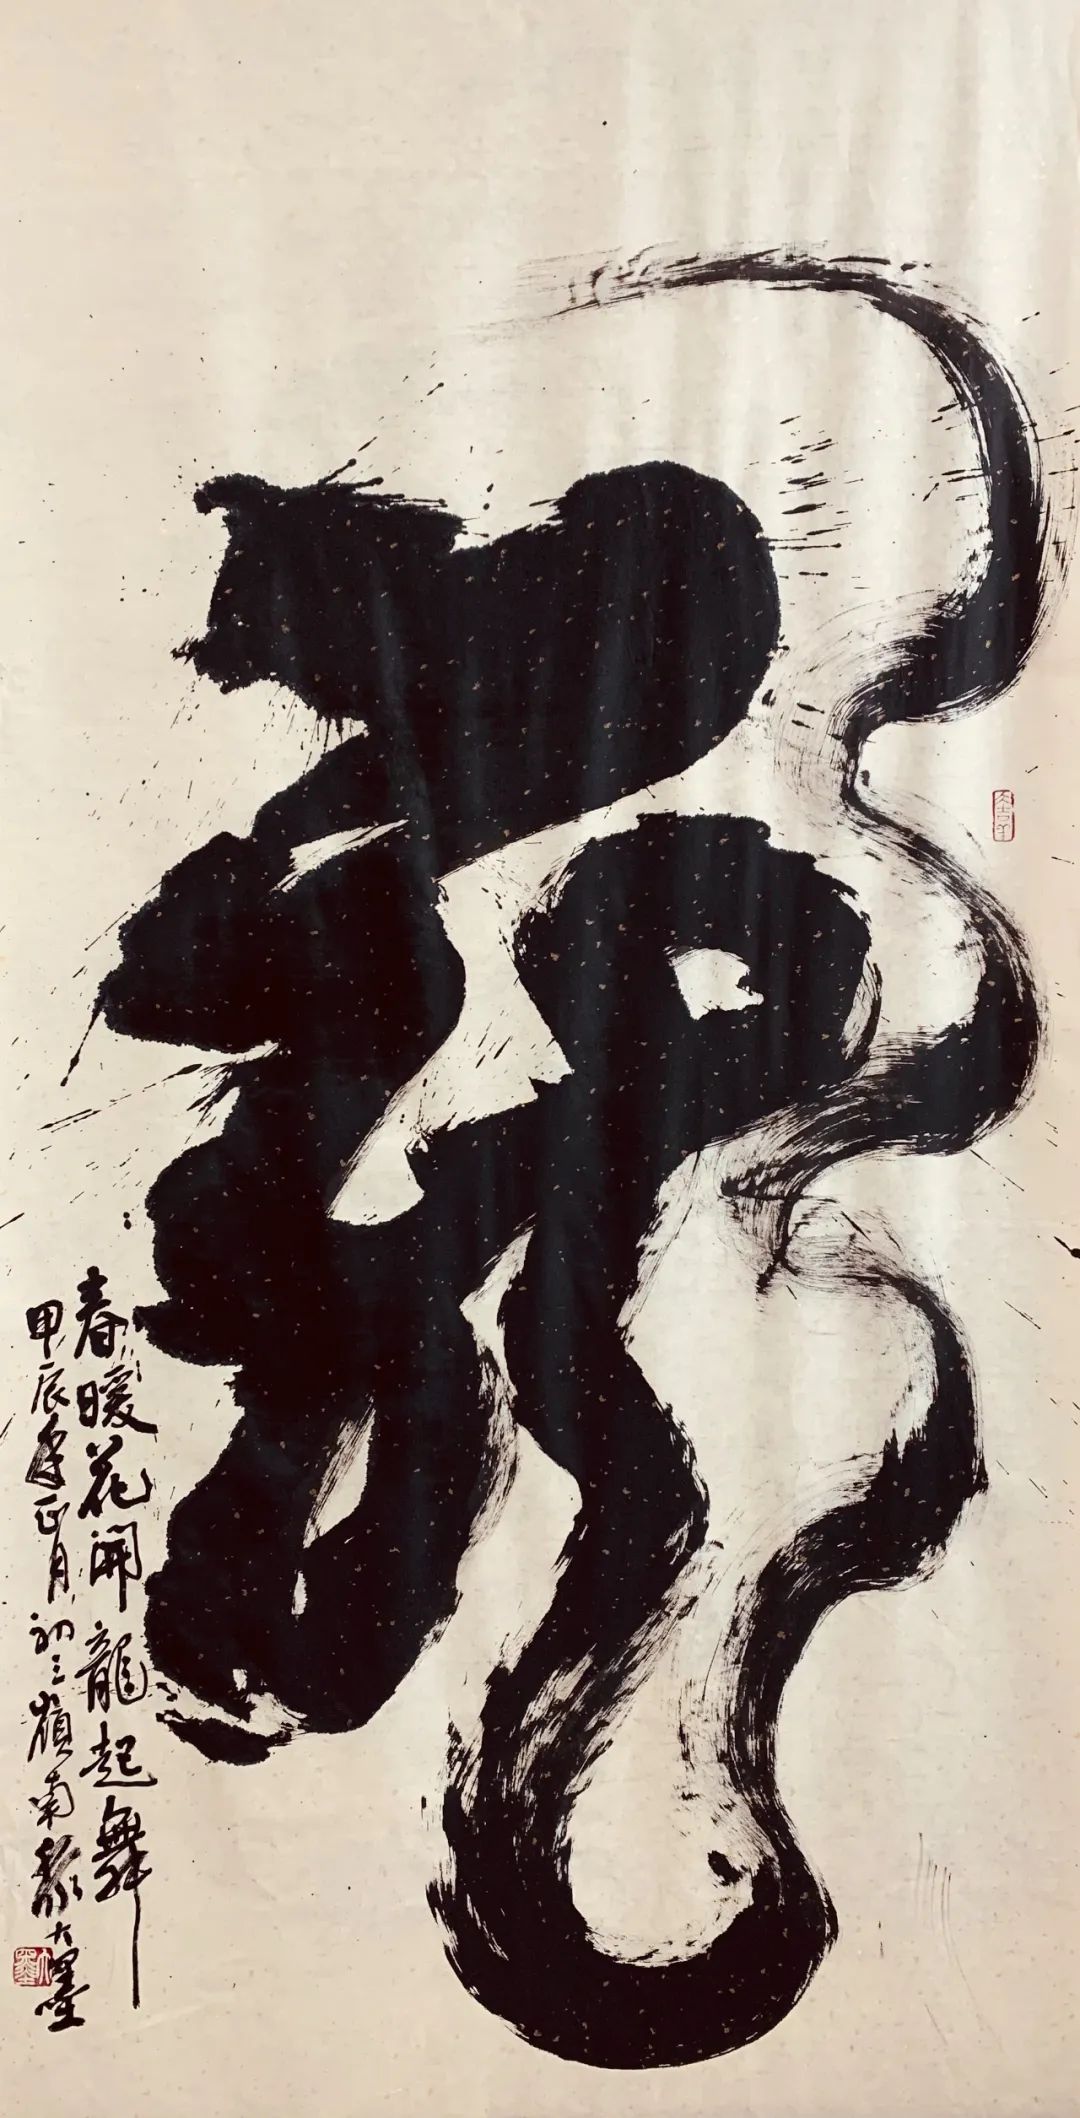 龍
春暖花開龍起舞
甲辰年正月初三嶺南黎大墨